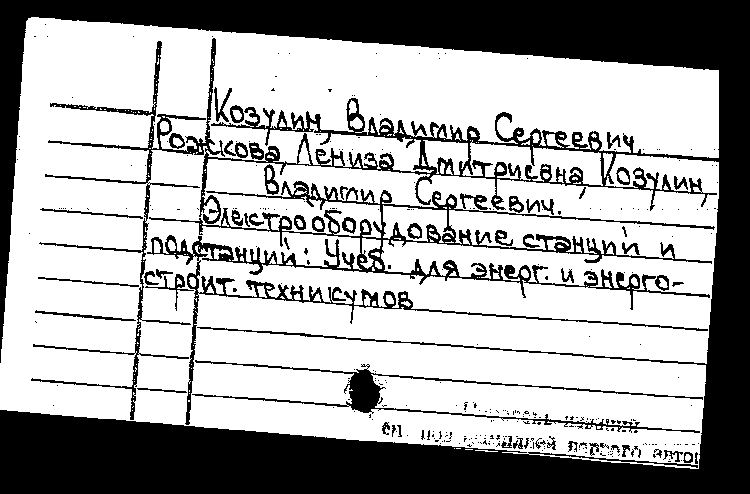 Козулин, Владимир Сергеевич.
Рожкова, Лениза Дмитриевна, Козулин,
Владимир Сергеевич.
Электрооборудование станций и
подстанций: Учеб. для энерг. и энерго-
строит. техникумов
изданий
см. под фамилией первого автор